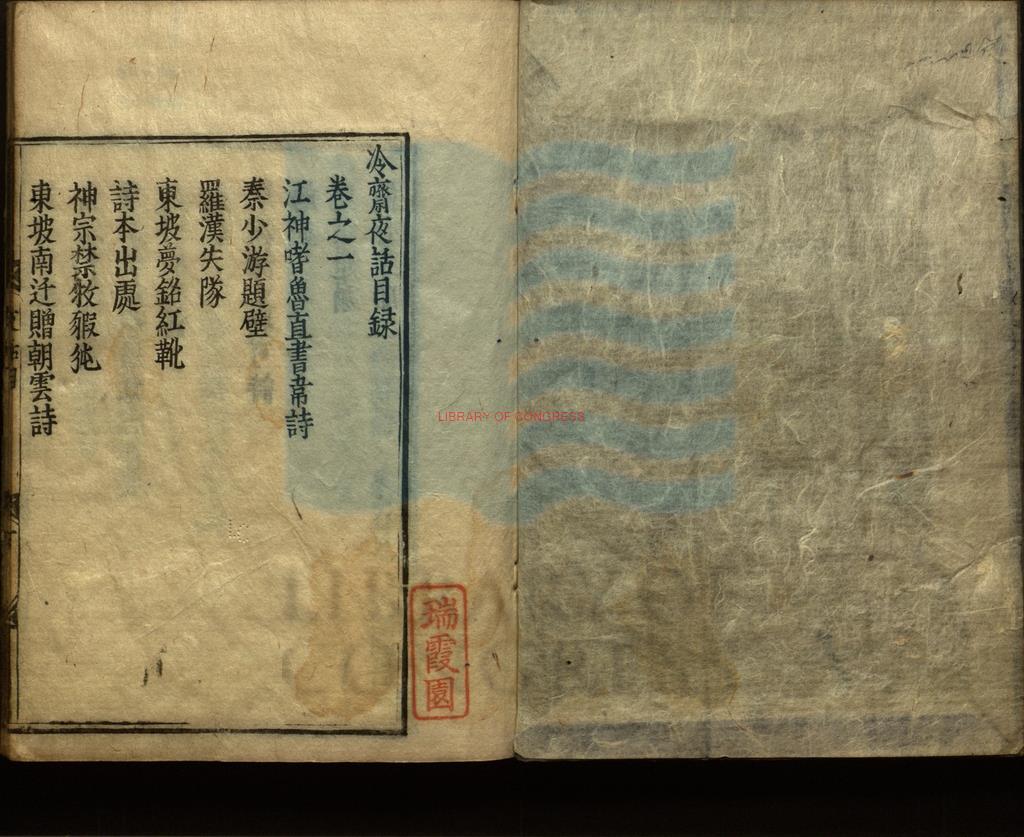 冷齋夜話目録
卷之一
江神嗜魯直書韋詩
秦少游題壁
羅漢失隊
東坡夢銘紅靴
詩本出處
神宗禁牧豭㹠
東坡南迁贈朝雲詩
瑞霞園
LIBRARY OF CONGRESS